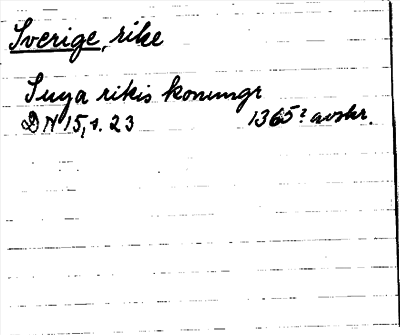 Sverige, rike
Suya rikis konungr
DN 15, s. 23 1365? avskr.